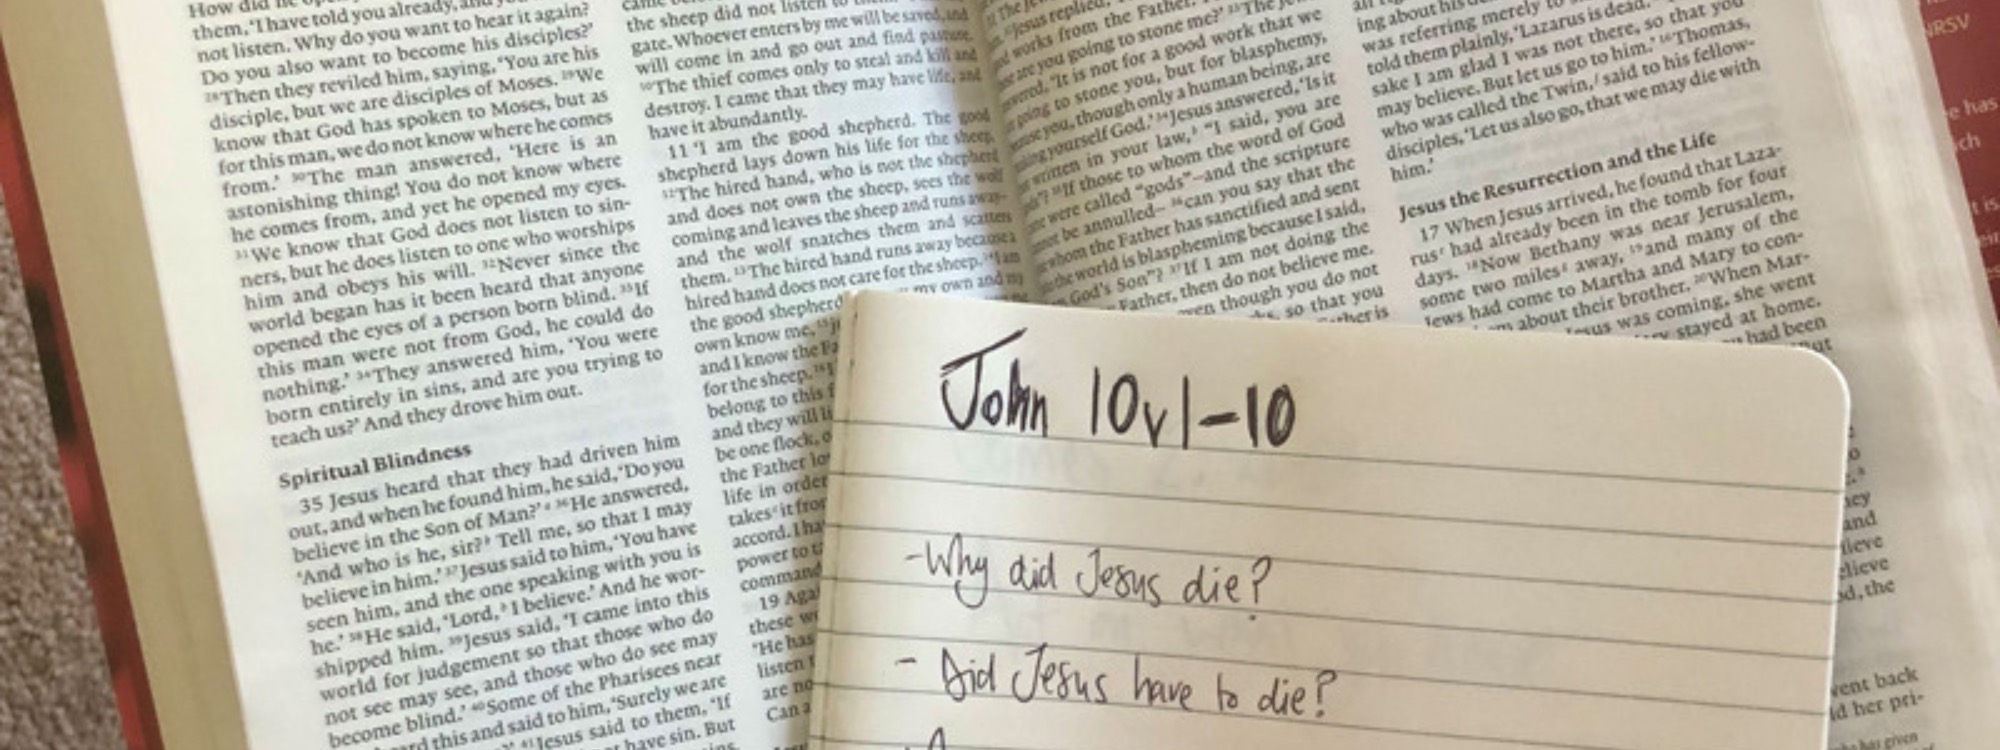 them, 'I have told you already, and you
not listen. Why do you want to hear it again?
Do you also want to become his disciples?'
28Then they reviled him, saying, 'You are his
disciple, but we are disciples of Moses. 29We
know that God has spoken to Moses, but as
for this man, we do not know where he comes
from.' 30The man answered, 'Here is an
astonishing thing! You do not know where
he comes from, and yet he opened my eyes.
31We know that God does not listen to sin-
ners, but he does listen to one who worships
him and obeys his will. 32Never since the
world began has it been heard that anyone
opened the eyes of a person born blind. 33If
this man were not from God, he could do
nothing.' 34They answered him, 'You were
born entirely in sins, and are you trying to
teach us?' And they drove him out.
Spiritual Blindness
35 Jesus heard that they had driven him
out, and when he found him, he said, 'Do you
believe in the Son of Man?' 36He answered,
'And who is he, sir? Tell me, so that I may
believe in him.' 37Jesus said to him, 'You have
seen him, and the one speaking with you is
he.' 38He said, 'Lord, I believe.' And he wor-
shipped him. 39Jesus said, 'I came into this
world for judgement so that those who do
not see may see, and those who do see may
become blind.' 40Some of the Pharisees near
this and said to him, 'Surely we are
41Jesus said to them, 'If
have sin. But
the sheep did not listen to
gate. Whoever enters by me will be saved, and
will come in and go out and find pasture.
10The thief comes only to steal and kill and
destroy. I came that they may have life, and
have it abundantly.
11 'I am the good shepherd. The good
shepherd lays down his life for the sheep.
12The hired hand, who is not the shepherd
and does not own the sheep, sees the wolf
coming and leaves the sheep and runs away—
and the wolf snatches them and scatters
them. 13The hired hand runs away because a
hired hand does not care for the sheep. 14I am
the good shepherd my own and my
own know me, 15
and I know the
for the sheep. 16
belong to this
and they will
be one flock,
the Father
life in order
takes it
accord. I
power to
command
19
these
'He has
listen
are
Can
Jesus replied,
works from the Father.
are you going to stone me?' 33The
'It is not for a good work that we
going to stone you, but for blasphemy,
you, though only a human being, are
yourself God.' 34Jesus answered, 'Is it
written in your law, "I said, you are
35If those to whom the word of God
were called "gods"—and the scripture
be annulled— 36can you say that the
whom the Father has sanctified and sent
the world is blaspheming because I said,
God's Son"? 37If I am not doing the
Father, then do not believe me.
though you do not
so that you
is
ing about his
was referring merely to
told them plainly, 'Lazarus is dead.
sake I am glad I was not there, so that you
may believe. But let us go to him.' 16Thomas,
who was called the Twin, said to his fellow-
disciples, 'Let us also go, that we may die with
him.'
Jesus the Resurrection and the Life
17 When Jesus arrived, he found that Laza-
rus had already been in the tomb for four
days. 18Now Bethany was near Jerusalem,
some two miles away, 19and many of the
Jews had come to Martha and Mary to con-
about their brother. 20When Mar-
was coming, she went
stayed at home.
had been
and
the
back
her pri-
NRSV
has
John 10v1-10
-Why did Jesus die?
- Did Jesus have to die?